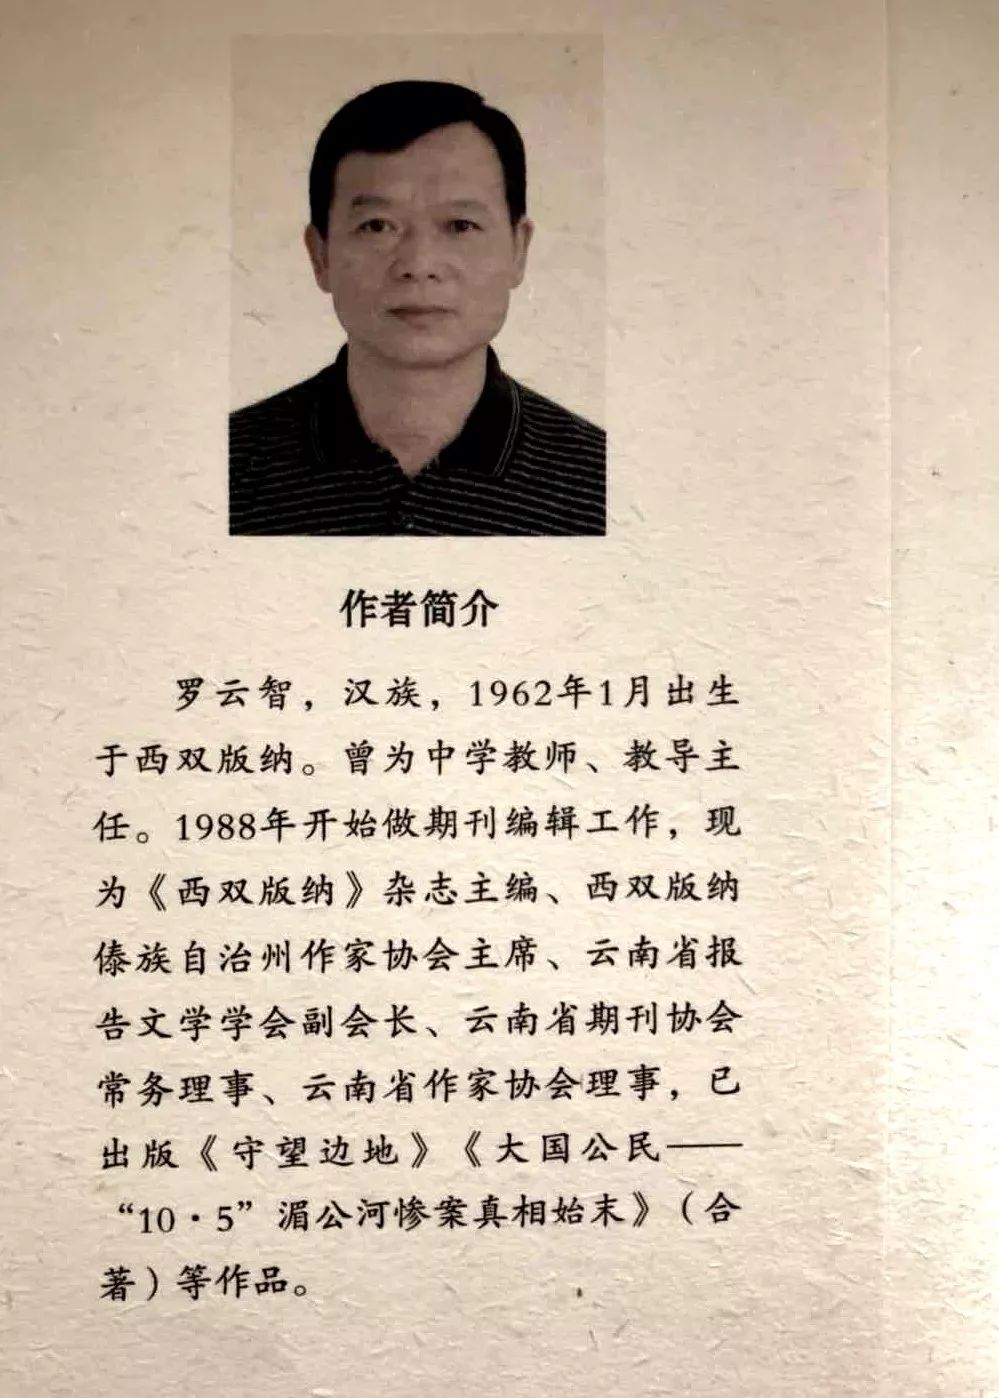 作者简介
罗云智，汉族，1962年1月出生
于西双版纳。曾为中学教师、教导主
任。1988年开始做期刊编辑工作，现
为《西双版纳》杂志主编、西双版纳
傣族自治州作家协会主席、云南省报
告文学学会副会长、云南省期刊协会
常务理事、云南省作家协会理事，已
出版《守望边地》《大国公民——
“10·5”湄公河惨案真相始末》（合
著）等作品。